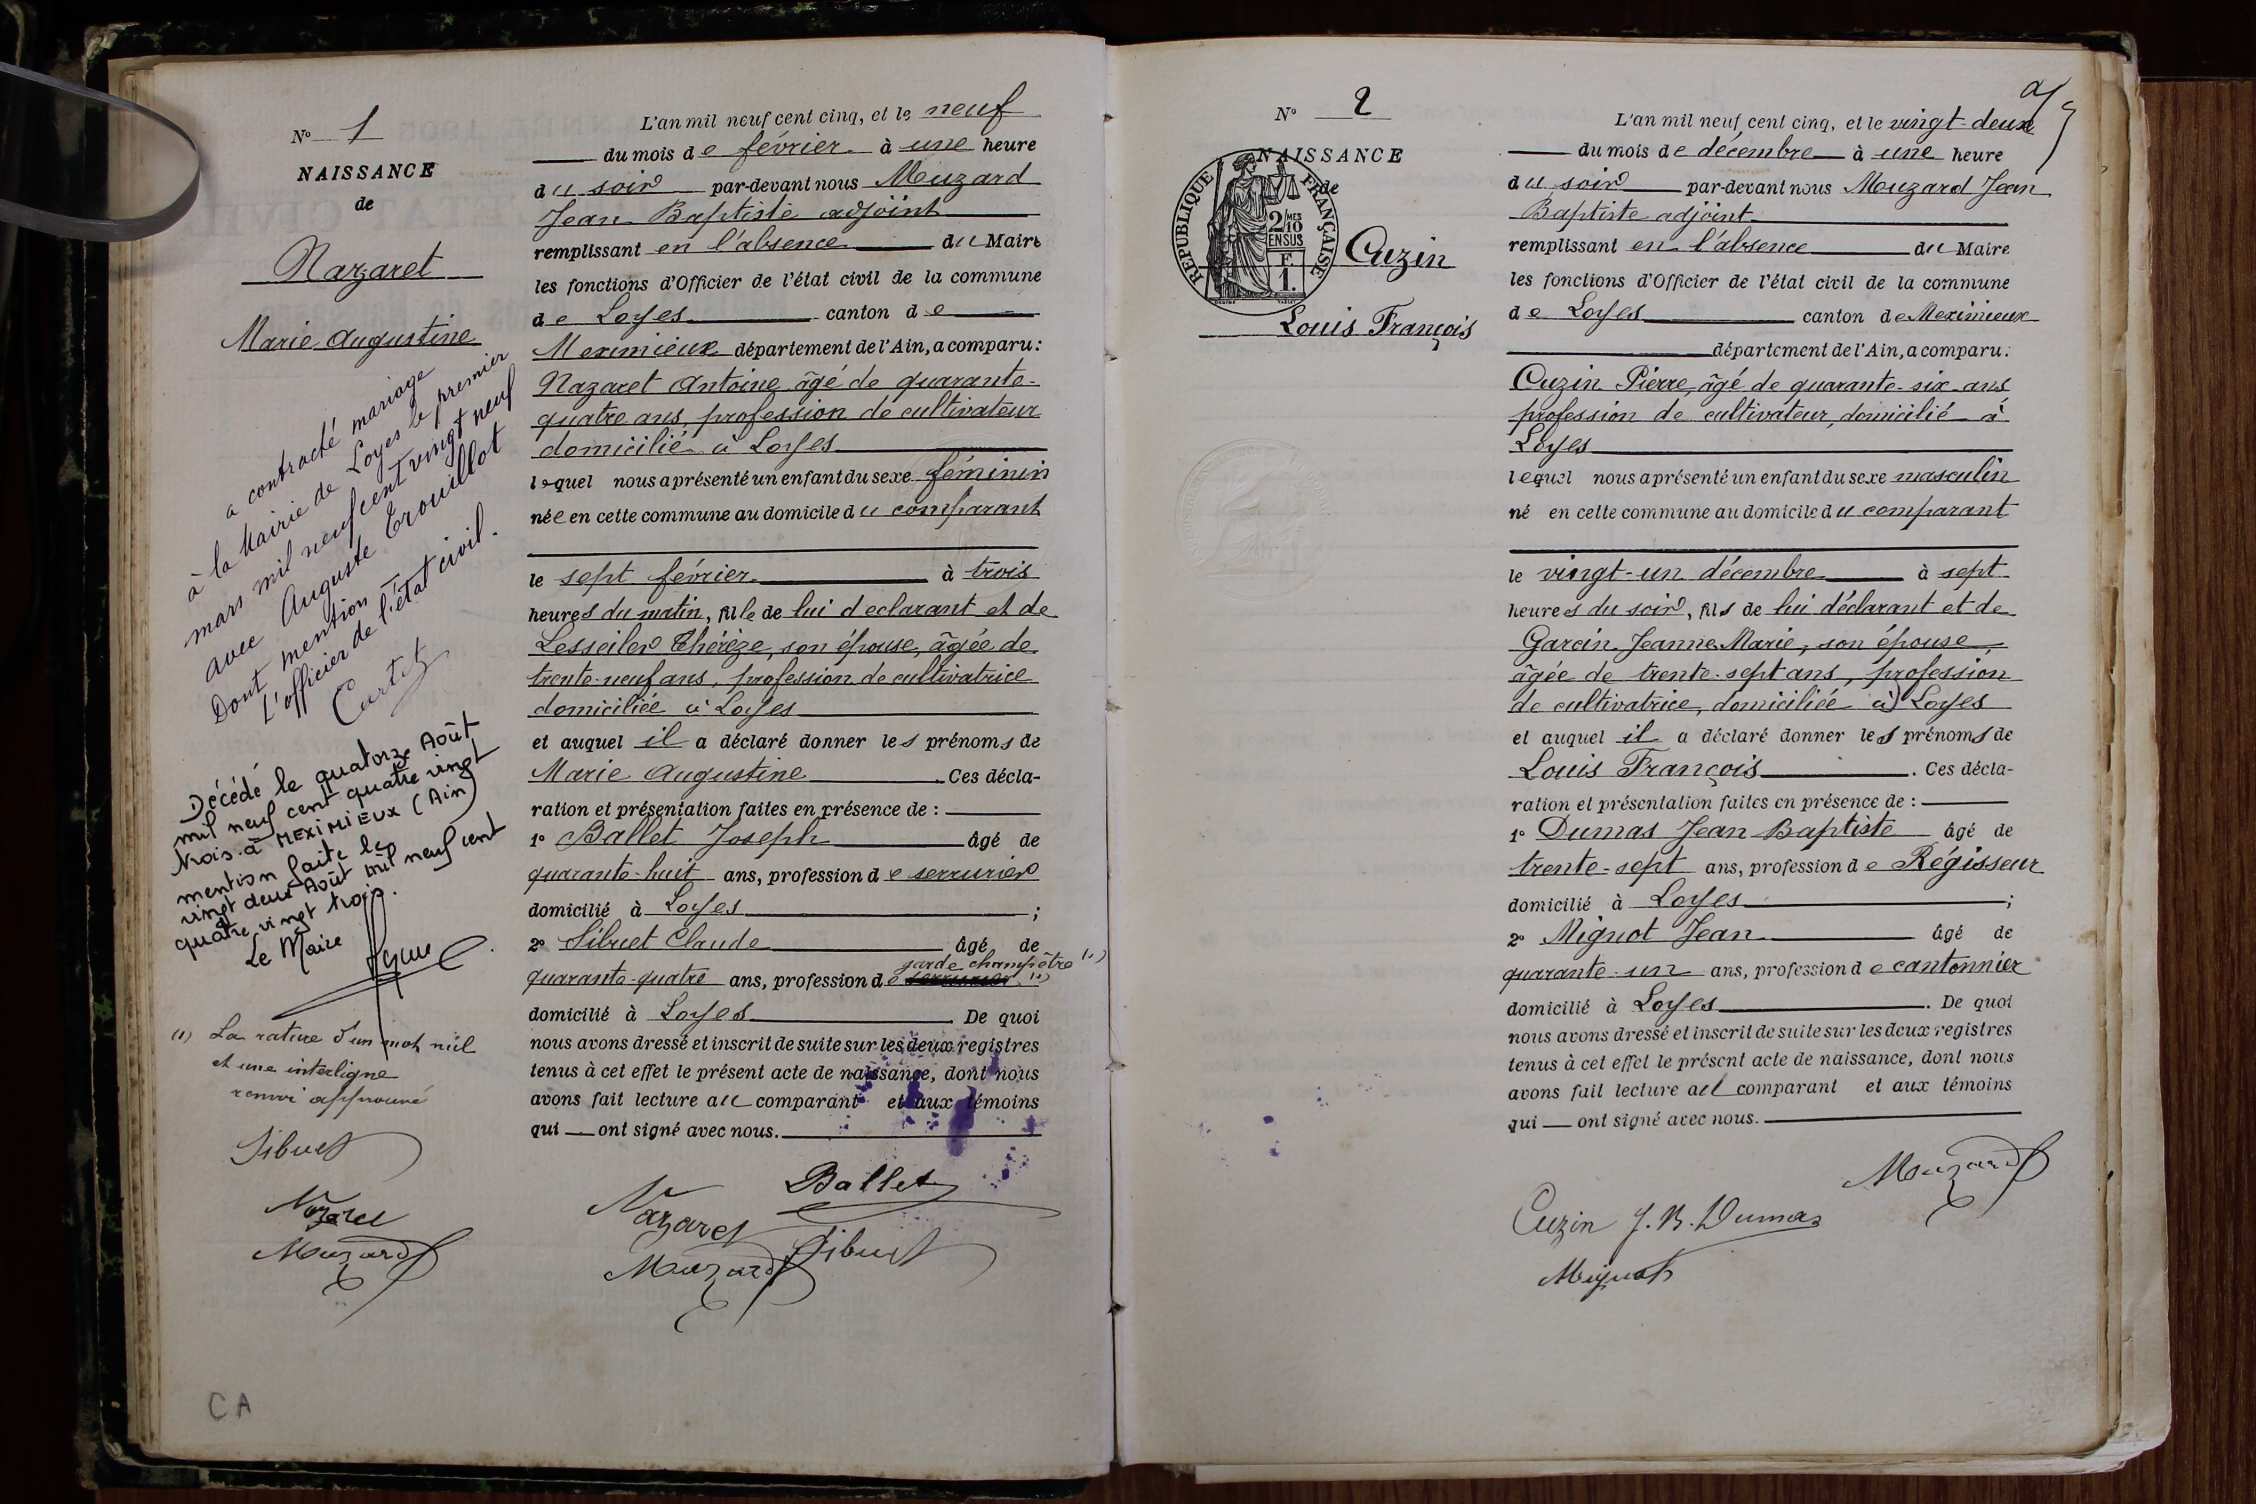 N° 1
NAISSANCE
de
Nazaret
Marie Augustine
a contracté mariage
à la Mairie de Loyes le premier
mars mil neuf cent vingt neuf
avec Auguste Trouillot
Dont mention –
L'officier de l'état civil.
Curtil
Décédé le quatorze Août
mil neuf cent quatre vingt
trois à MEXIMIEUX (Ain)
mention faite le
vingt deux Août mil neuf cent
quatre vingt trois.
Le Maire
(1) La rature d'un mot nul
et une interligne
renvoi approuvé
Sibuet
Nazaret
Muzard
CA
L'an mil neuf cent cinq, et le neuf
du mois de février à une heure
du soir par-devant nous Muzard
Jean Baptiste adjoint
remplissant en l'absence du Maire
les fonctions d'Officier de l'état civil de la commune
de Loyes canton de
Meximieux département de l'Ain, a comparu :
Nazaret Antoine âgé de quarante-
quatre ans, profession de cultivateur
domicilié à Loyes
lequel nous a présenté un enfant du sexe féminin
née en cette commune au domicile du comparant
le sept février à trois
heures du matin, fille de lui declarant et de
Thérèze, son épouse, âgée de
trente-neuf ans, profession de cultivatrice
domiciliée à Loyes
et auquel il a déclaré donner les prénoms de
Marie Augustine. Ces décla-
ration et présentation faites en présence de :
1° Ballet Joseph âgé de
quarante-huit ans, profession de serrurier
domicilié à Loyes ;
2° Sibuet Claude âgé de
garde champêtre (1)
quarante-quatre ans, profession de serrurier (1)
domicilié à Loyes. De quoi
nous avons dressé et inscrit de suite sur les deux registres
tenus à cet effet le présent acte de naissance, dont nous
avons fait lecture au comparant et aux témoins
qui — ont signé avec nous.
Ballet
Nazaret
Sibuet
Muzard
N° 2
NAISSANCE
de
RÉPUBLIQUE FRANÇAISE
2/10 MES
EN SUS
F
1.
Cuzin
Louis François
L'an mil neuf cent cinq, et le vingt-deux
du mois de décembre à une heure
du soir par-devant nous Muzard Jean
Baptiste adjoint
remplissant en l'absence du Maire
les fonctions d'Officier de l'état civil de la commune
de Loyes canton de Meximieux
département de l'Ain, a comparu :
Cuzin Pierre, âgé de quarante-six ans
profession de cultivateur, domicilié à
Loyes
lequel nous a présenté un enfant du sexe masculin
né en cette commune au domicile du comparant
le vingt-un décembre à sept
heures du soir, fils de lui déclarant et de
Garcin Jeanne Marie, son épouse,
âgée de trente-sept ans, profession
de cultivatrice, domiciliée à Loyes
et auquel il a déclaré donner les prénoms de
Louis François. Ces décla-
ration et présentation faites en présence de :
1° Dumas Jean-Baptiste âgé de
trente-sept ans, profession de Régisseur
domicilié à Loyes ;
2° Mignot Jean âgé de
quarante-un ans, profession de cantonnier
domicilié à Loyes. De quoi
nous avons dressé et inscrit de suite sur les deux registres
tenus à cet effet le présent acte de naissance, dont nous
avons fait lecture au comparant et aux témoins
qui — ont signé avec nous.
Muzard
Cuzin J. B. Dumas
Mignot